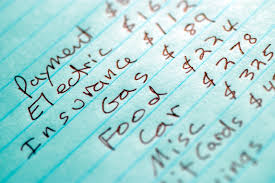 Payment $
Electric $112
Insurance $ 89
Gas $224
Food $278
Car $325
Misc $
ift Cards $4
ings